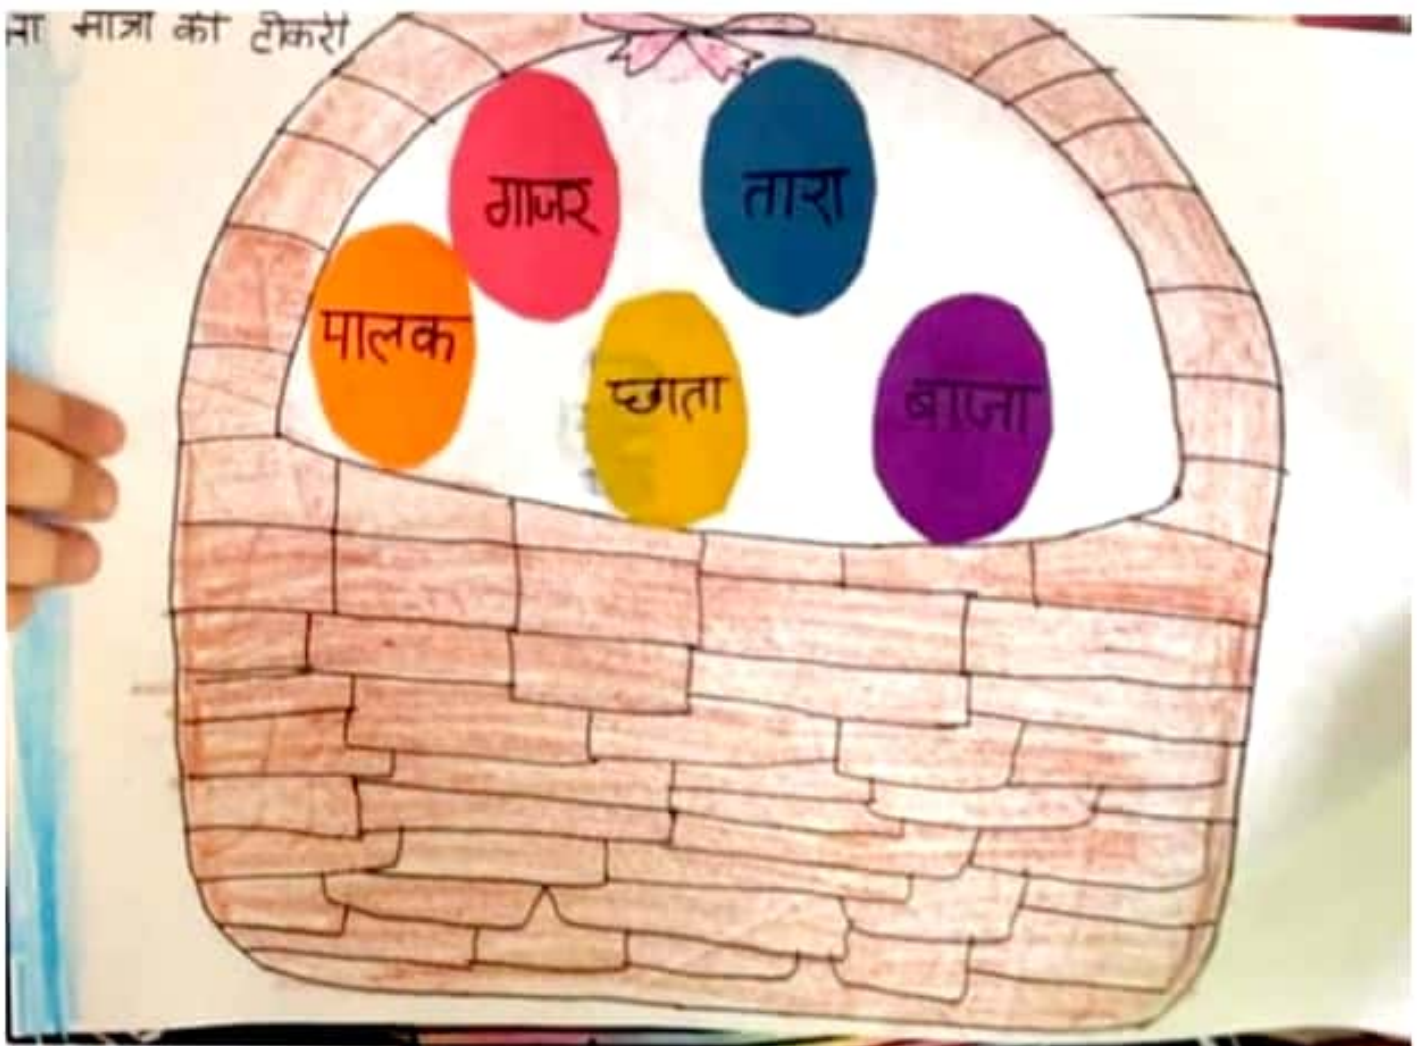 मात्रा की टोकरी
गाजर
तारा
पालक
छाता
बाजा